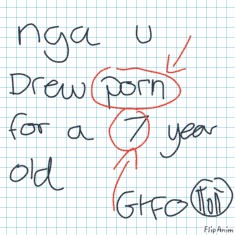 nga u
Drew porn
for a 7 year
old
GTFO
FlipAnim